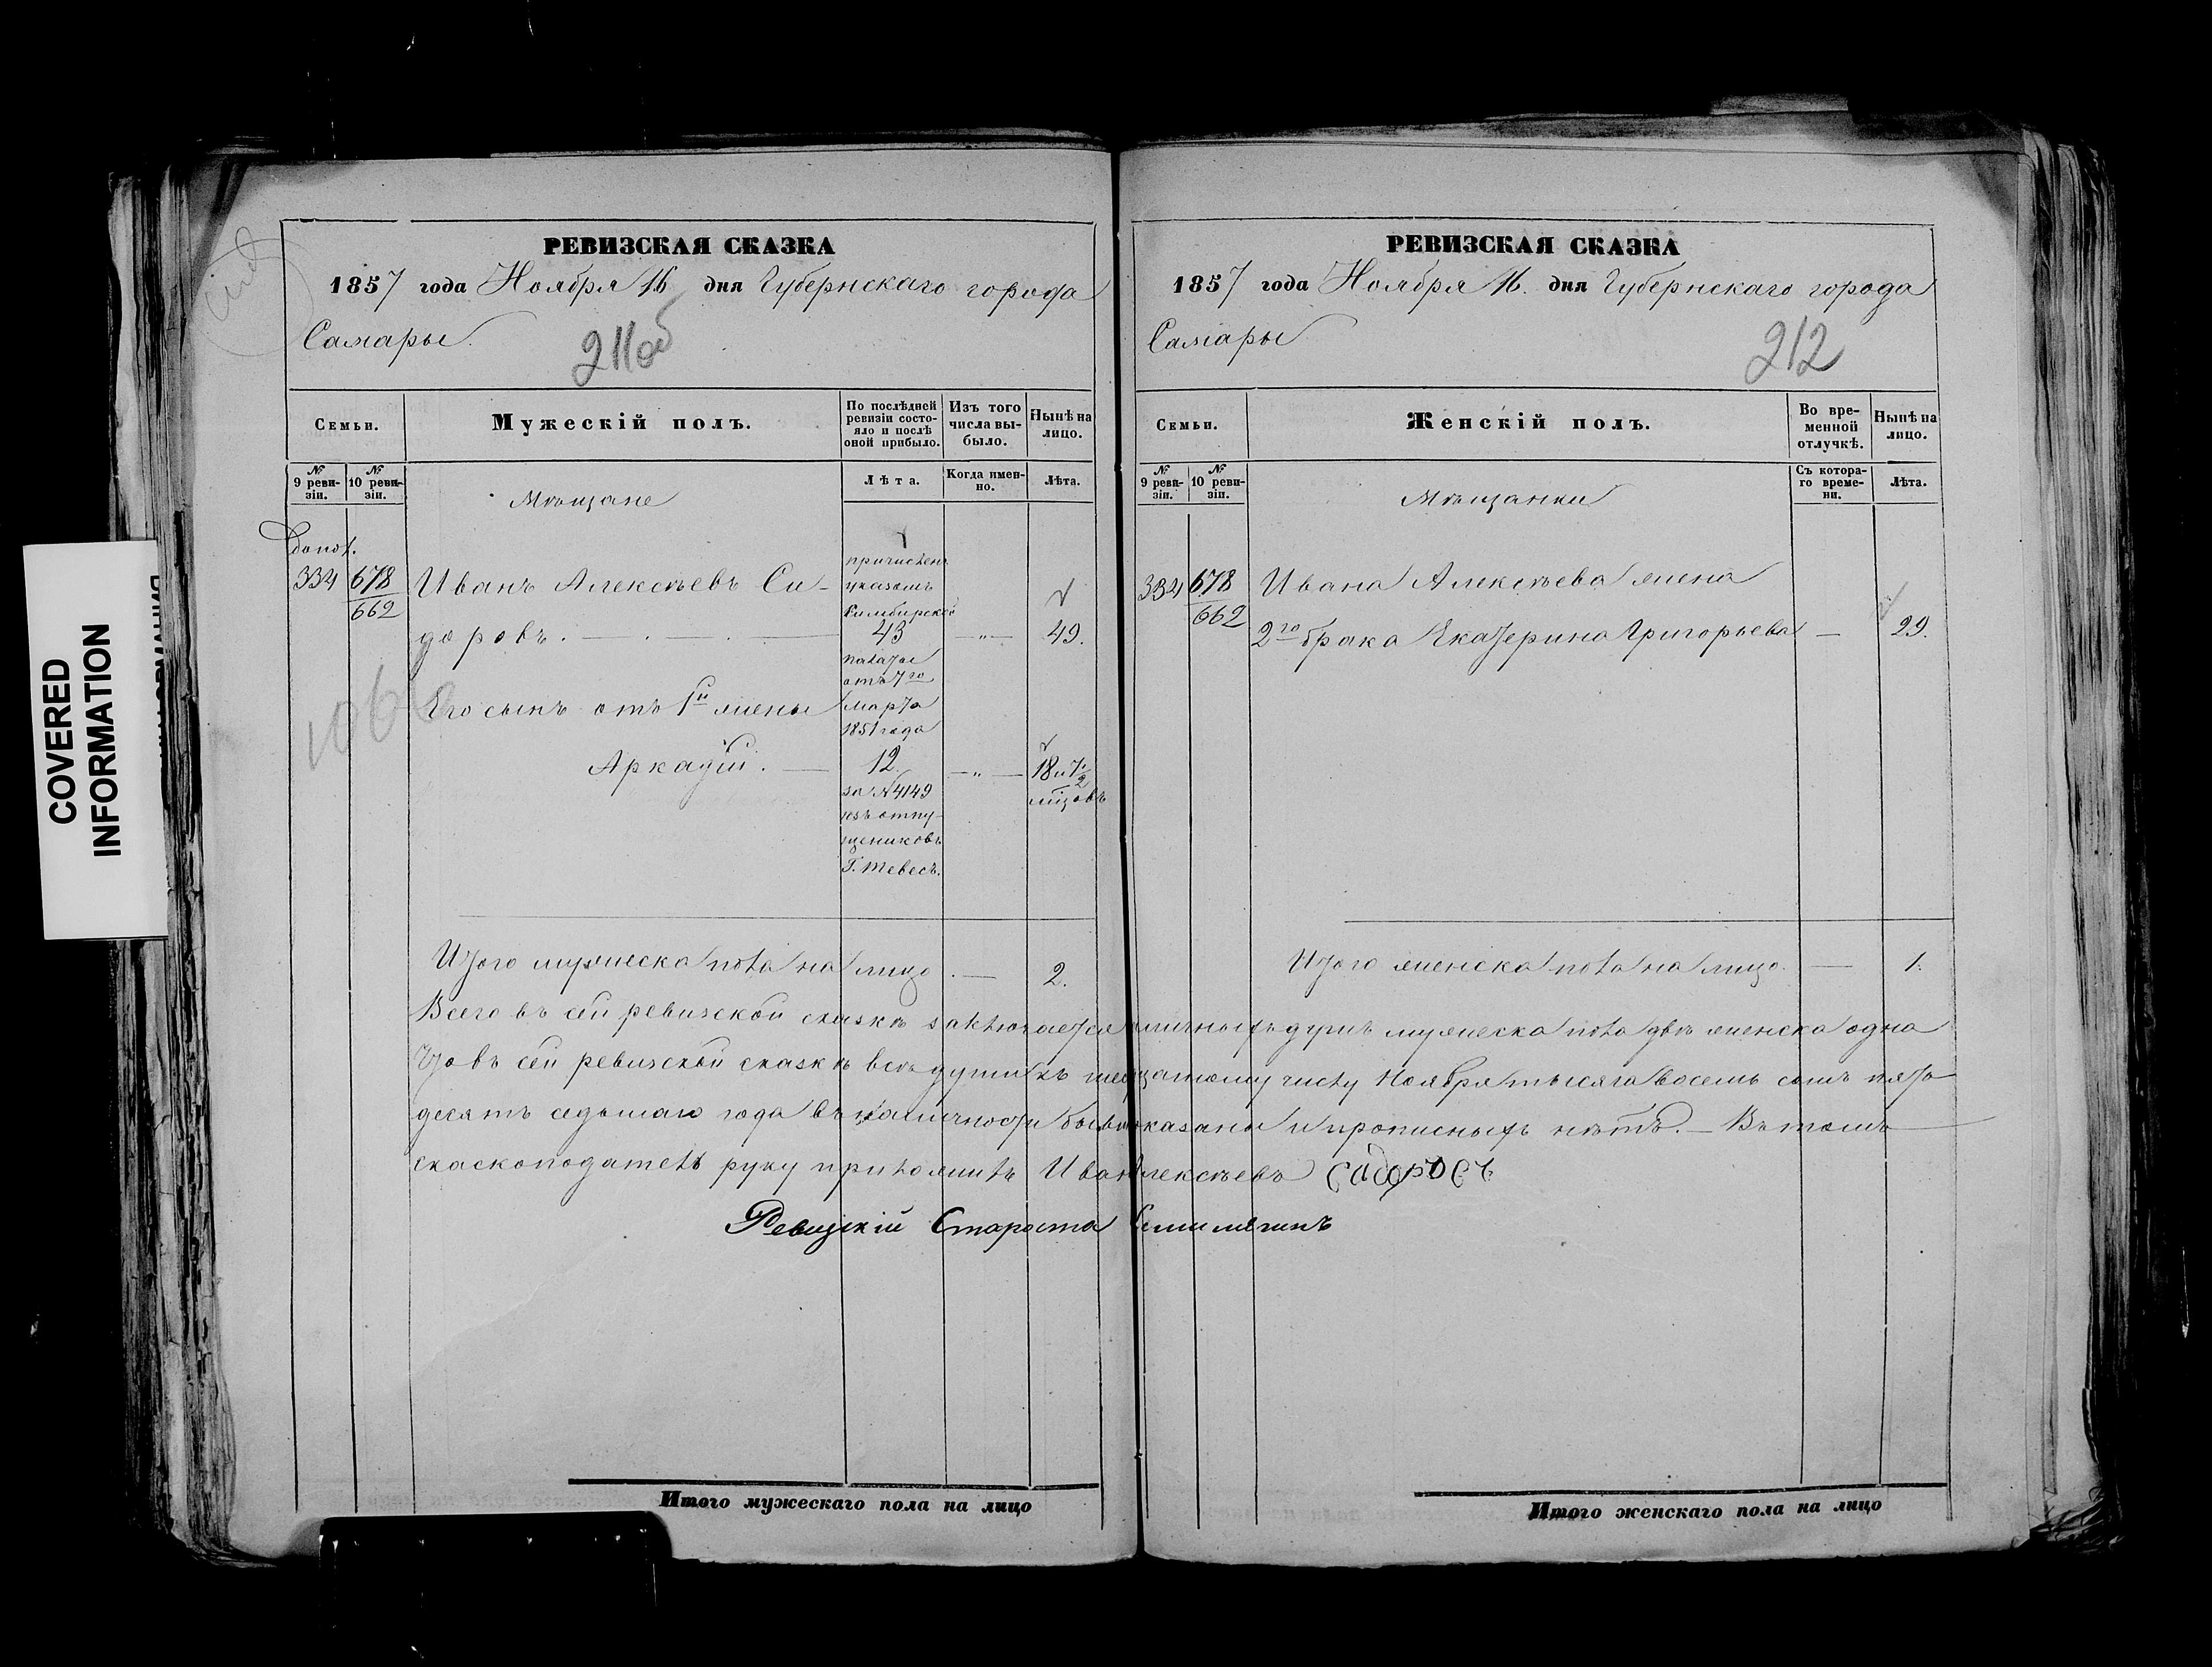 COVERED
INFORMATION
РЕВИЗСКАЯ СКАЗКА
1857 года Ноября 16 дня Губернскаго города
Самары.
211об
Семьи.
Мужескій полъ.
По послѣдней ревизіи состо-
яло и послѣ
оной прибыло.
Изъ того
числа вы-
было.
Нынѣ на
лицо.
№
9 реви-
зіи.
№
10 реви-
зіи.
Мѣщане
Лѣта.
Когда имен-
но.
Лѣта.
допол.
334 678 Иванъ Алексѣевъ Си-
662
доровъ. 43 " 49.
причисленъ
указомъ
Симбирской
палаты
отъ 7го
Марта
1851 года
Его сынъ отъ 1й жены
Аркадій. 12. " 18 и 7 1/2
мѣсяцовъ
за №4149
изъ отпу-
щениковъ
Г. Тевесъ.
106
Итого мужеска пола на лицо . — 2.
РЕВИЗСКАЯ СКАЗКА
1857 года Ноября 16. дня Губернскаго города
Самары
212
Семьи.
Женскій полъ.
Во вре-
менной
отлучкѣ.
Нынѣ на
лицо.
№
9 реви-
зіи.
№
10 реви-
зіи.
Мѣщанки
Съ котора-
го време-
ни.
Лѣта.
334 678 Ивана Алексѣева жена
662 2го брака Екатерина Григорьева — 29.
Итого женска пола на лицо. — 1.
Всего въ сей ревизской сказкѣ заключается наличныхъ душъ мужеска пола двѣ женска одна
Что въ сей ревизской сказкѣ всѣ души къ шестнадцатому числу Ноября тысяча восемь сотъ пять
десятъ седьмаго года въ наличности бывши показаны и прописныхъ нѣтъ. — Въ томъ
сказкоподатель руку приложилъ Иванъ Алексѣевъ Сидоровъ
Ревизскій Староста
Итого мужескаго пола на лицо
Итого женскаго пола на лицо